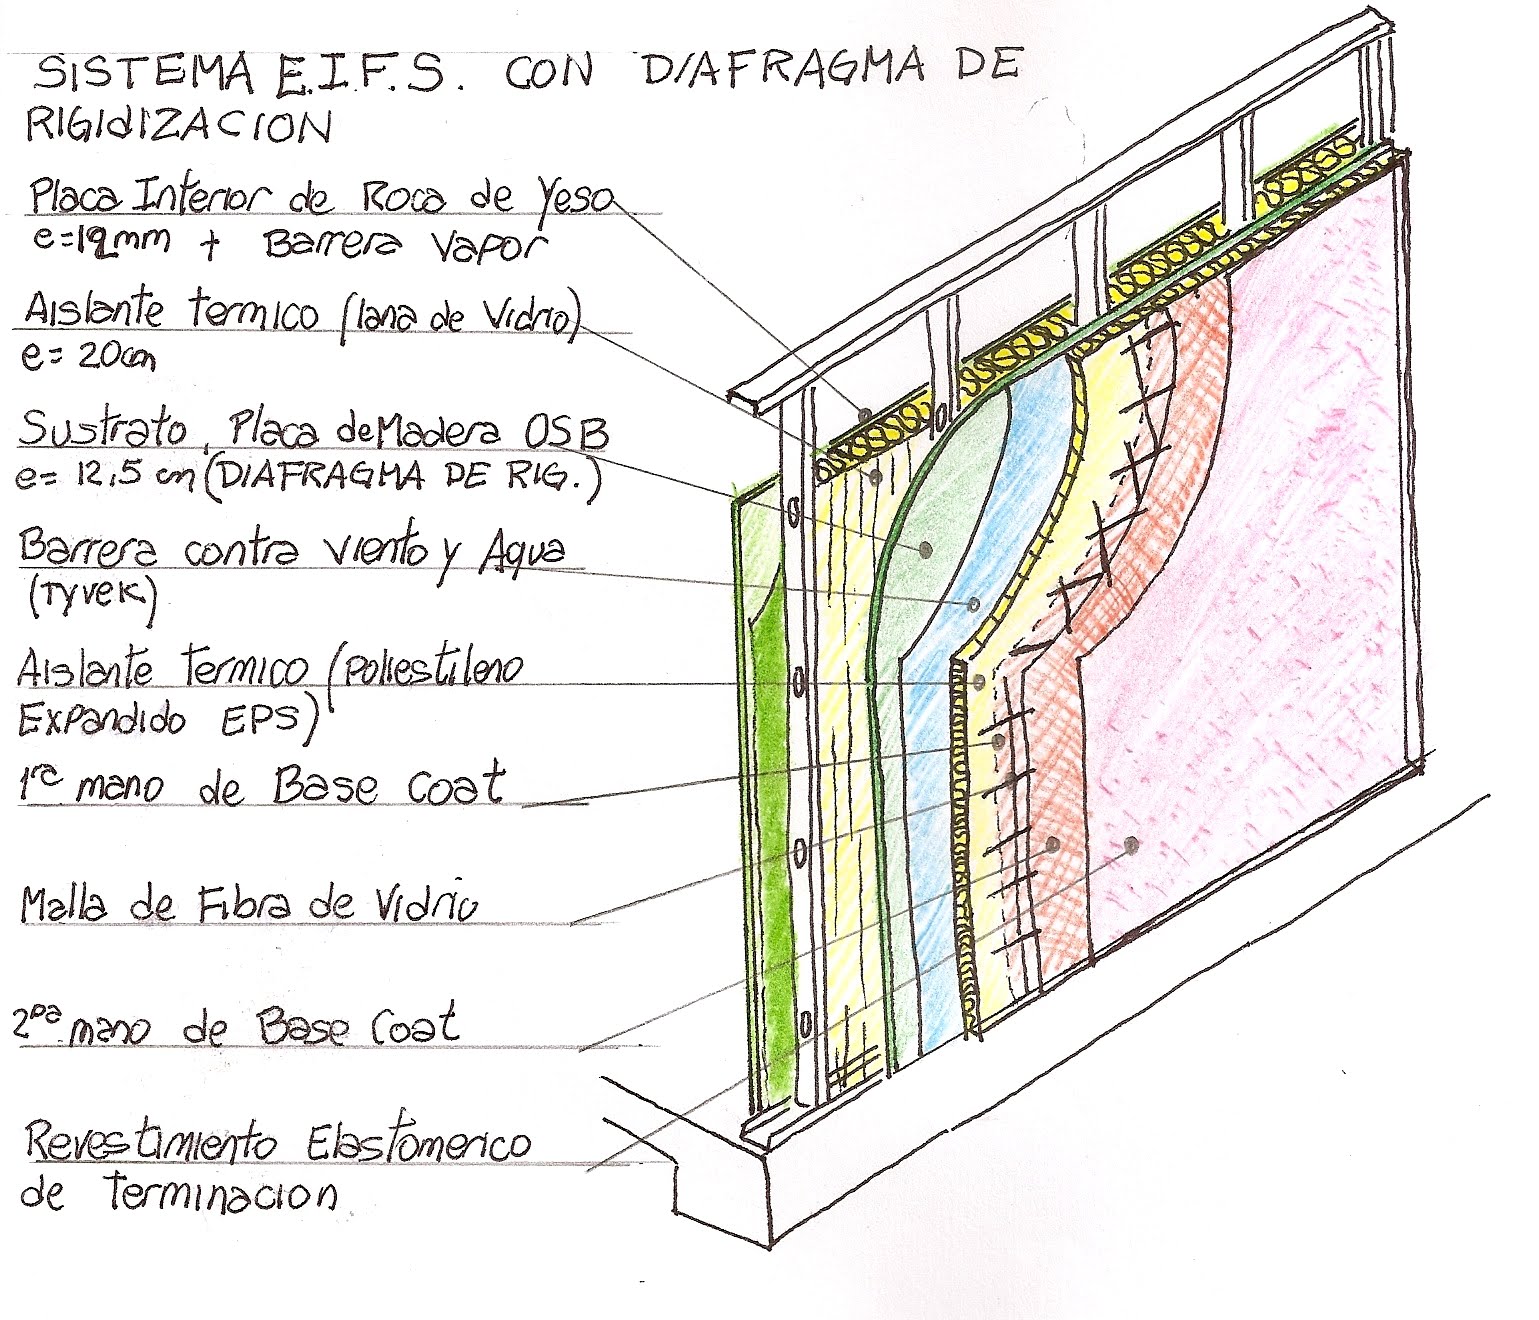 SISTEMA E.I.F.S. CON DIAFRAGMA DE
RIGIdIZACION
Placa Interior de Roca de Yeso
e=12mm + Barrera Vapor
Aislante termico (lana de Vidrio)
e= 20cm
Sustrato, Placa de Madera OSB
e= 12,5 cm (DIAFRAGMA DE RIG.)
Barrera contra viento y Agua
(TYVEK)
Aislante Termico (Poliestileno
Expandido EPS)
1ra mano de Base Coat
Malla de Fibra de Vidrio
2da mano de Base Coat
Revestimiento Elastomerico
de Terminacion